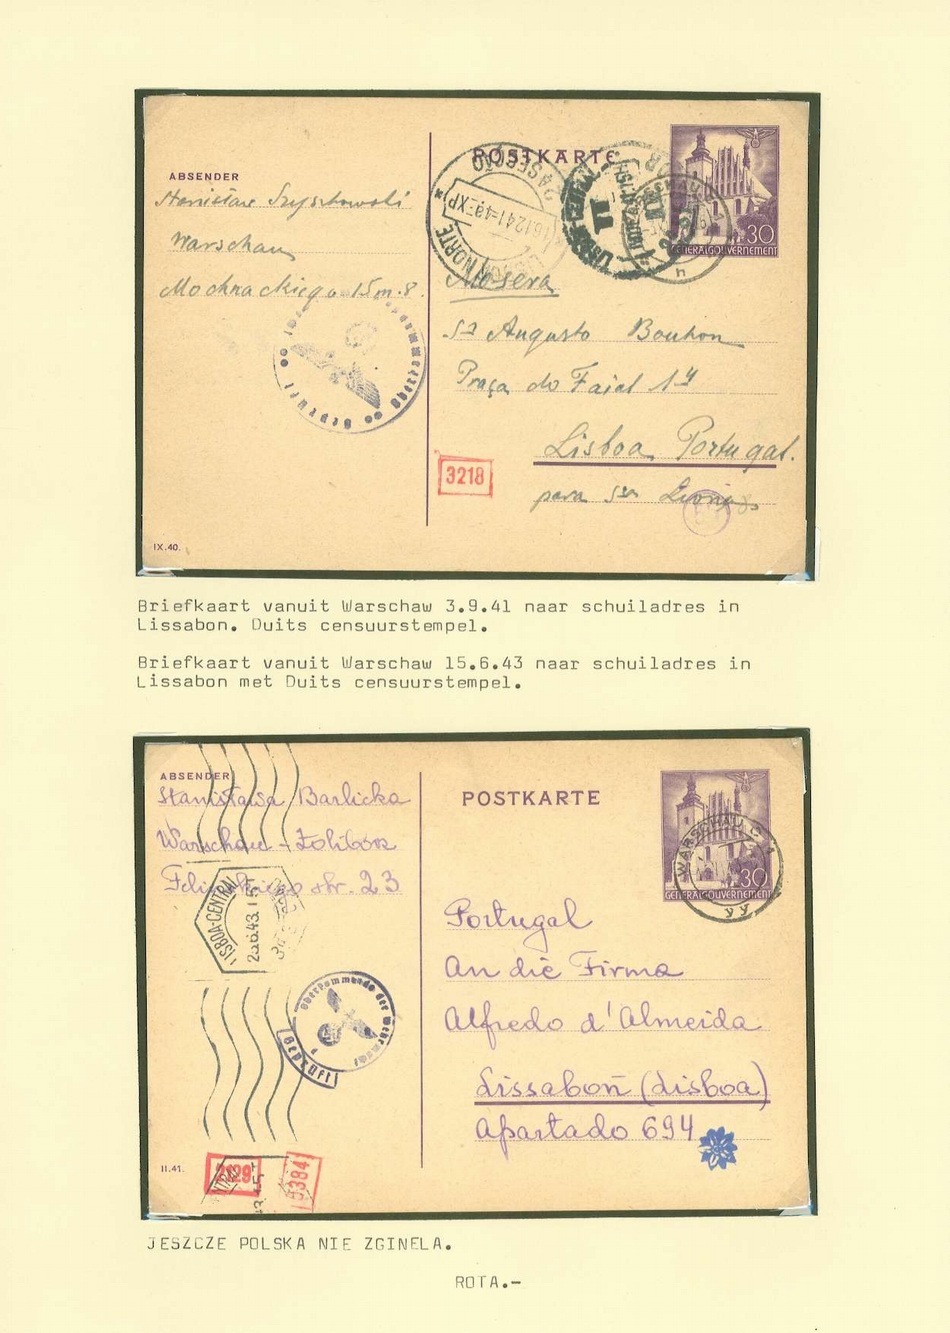 POSTKARTE
ABSENDER
Stanisław Szyszkowski
Warschau
Mochnackiego 15 m. 8.
30
GENERALGOUVERNEMENT
LISBOA NORTE
2ª SECÇÃO
Geprüft
Augusto Bouhon
Praça do Faial 14
Lisboa Portugal.
3218
para
IX.40.
Briefkaart vanuit Warschaw 3.9.41 naar schuiladres in
Lissabon. Duits censuurstempel.
Briefkaart vanuit Warschaw 15.6.43 naar schuiladres in
Lissabon met Duits censuurstempel.
ABSENDER
Stanisława Barlicka
POSTKARTE
Warschau - Żoliborz
str. 23
30
GENERALGOUVERNEMENT
WARSCHAU C 1
yy
LISBOA-CENTRAL
Portugal
An die Firma
Alfredo d'Almeida
Oberkommando der Wehrmacht
Geprüft
Lissabon (Lisboa)
Apartado 694
II.41.
2129
JESZCZE POLSKA NIE ZGINELA.
ROTA.-